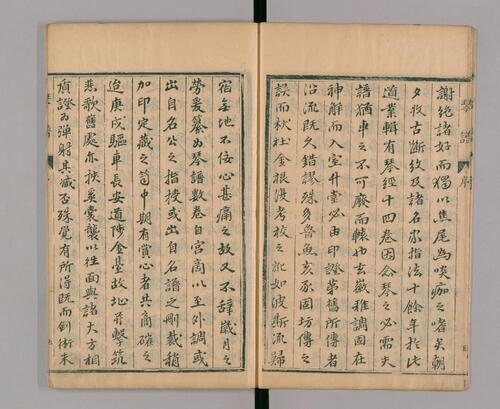 謝絕諸好而獨以焦尾為啖痂之嗜矣朝
夕牧古斷紋及諸名家指法十餘年於此
道業輯有琴經十四卷因念琴之必需夫
譜猶車之不可廢而轅也玄徽稚調固在
神解而入室升堂必由印證第舊所傳者
沿流既久錯謬殊多魯魚亥豕固坊傳之
誤而杕杜金根漫考校之訛如波斯流歸
琴譜 序
宿無地不佞心甚痛之故又不辭歲月之
勞爰纂為琴譜數卷自宮商以至外調或
出自名公之指授或出自名譜之刪裁稍
加印定藏之笥中期有賞心者共商確之
迨庚戌驅車長安道陟金臺故地並擊筑
悲歌舊處亦挾奚囊襲以往面與諸大方相
質證為彈射其臧否殊覺有所得既而劍術未